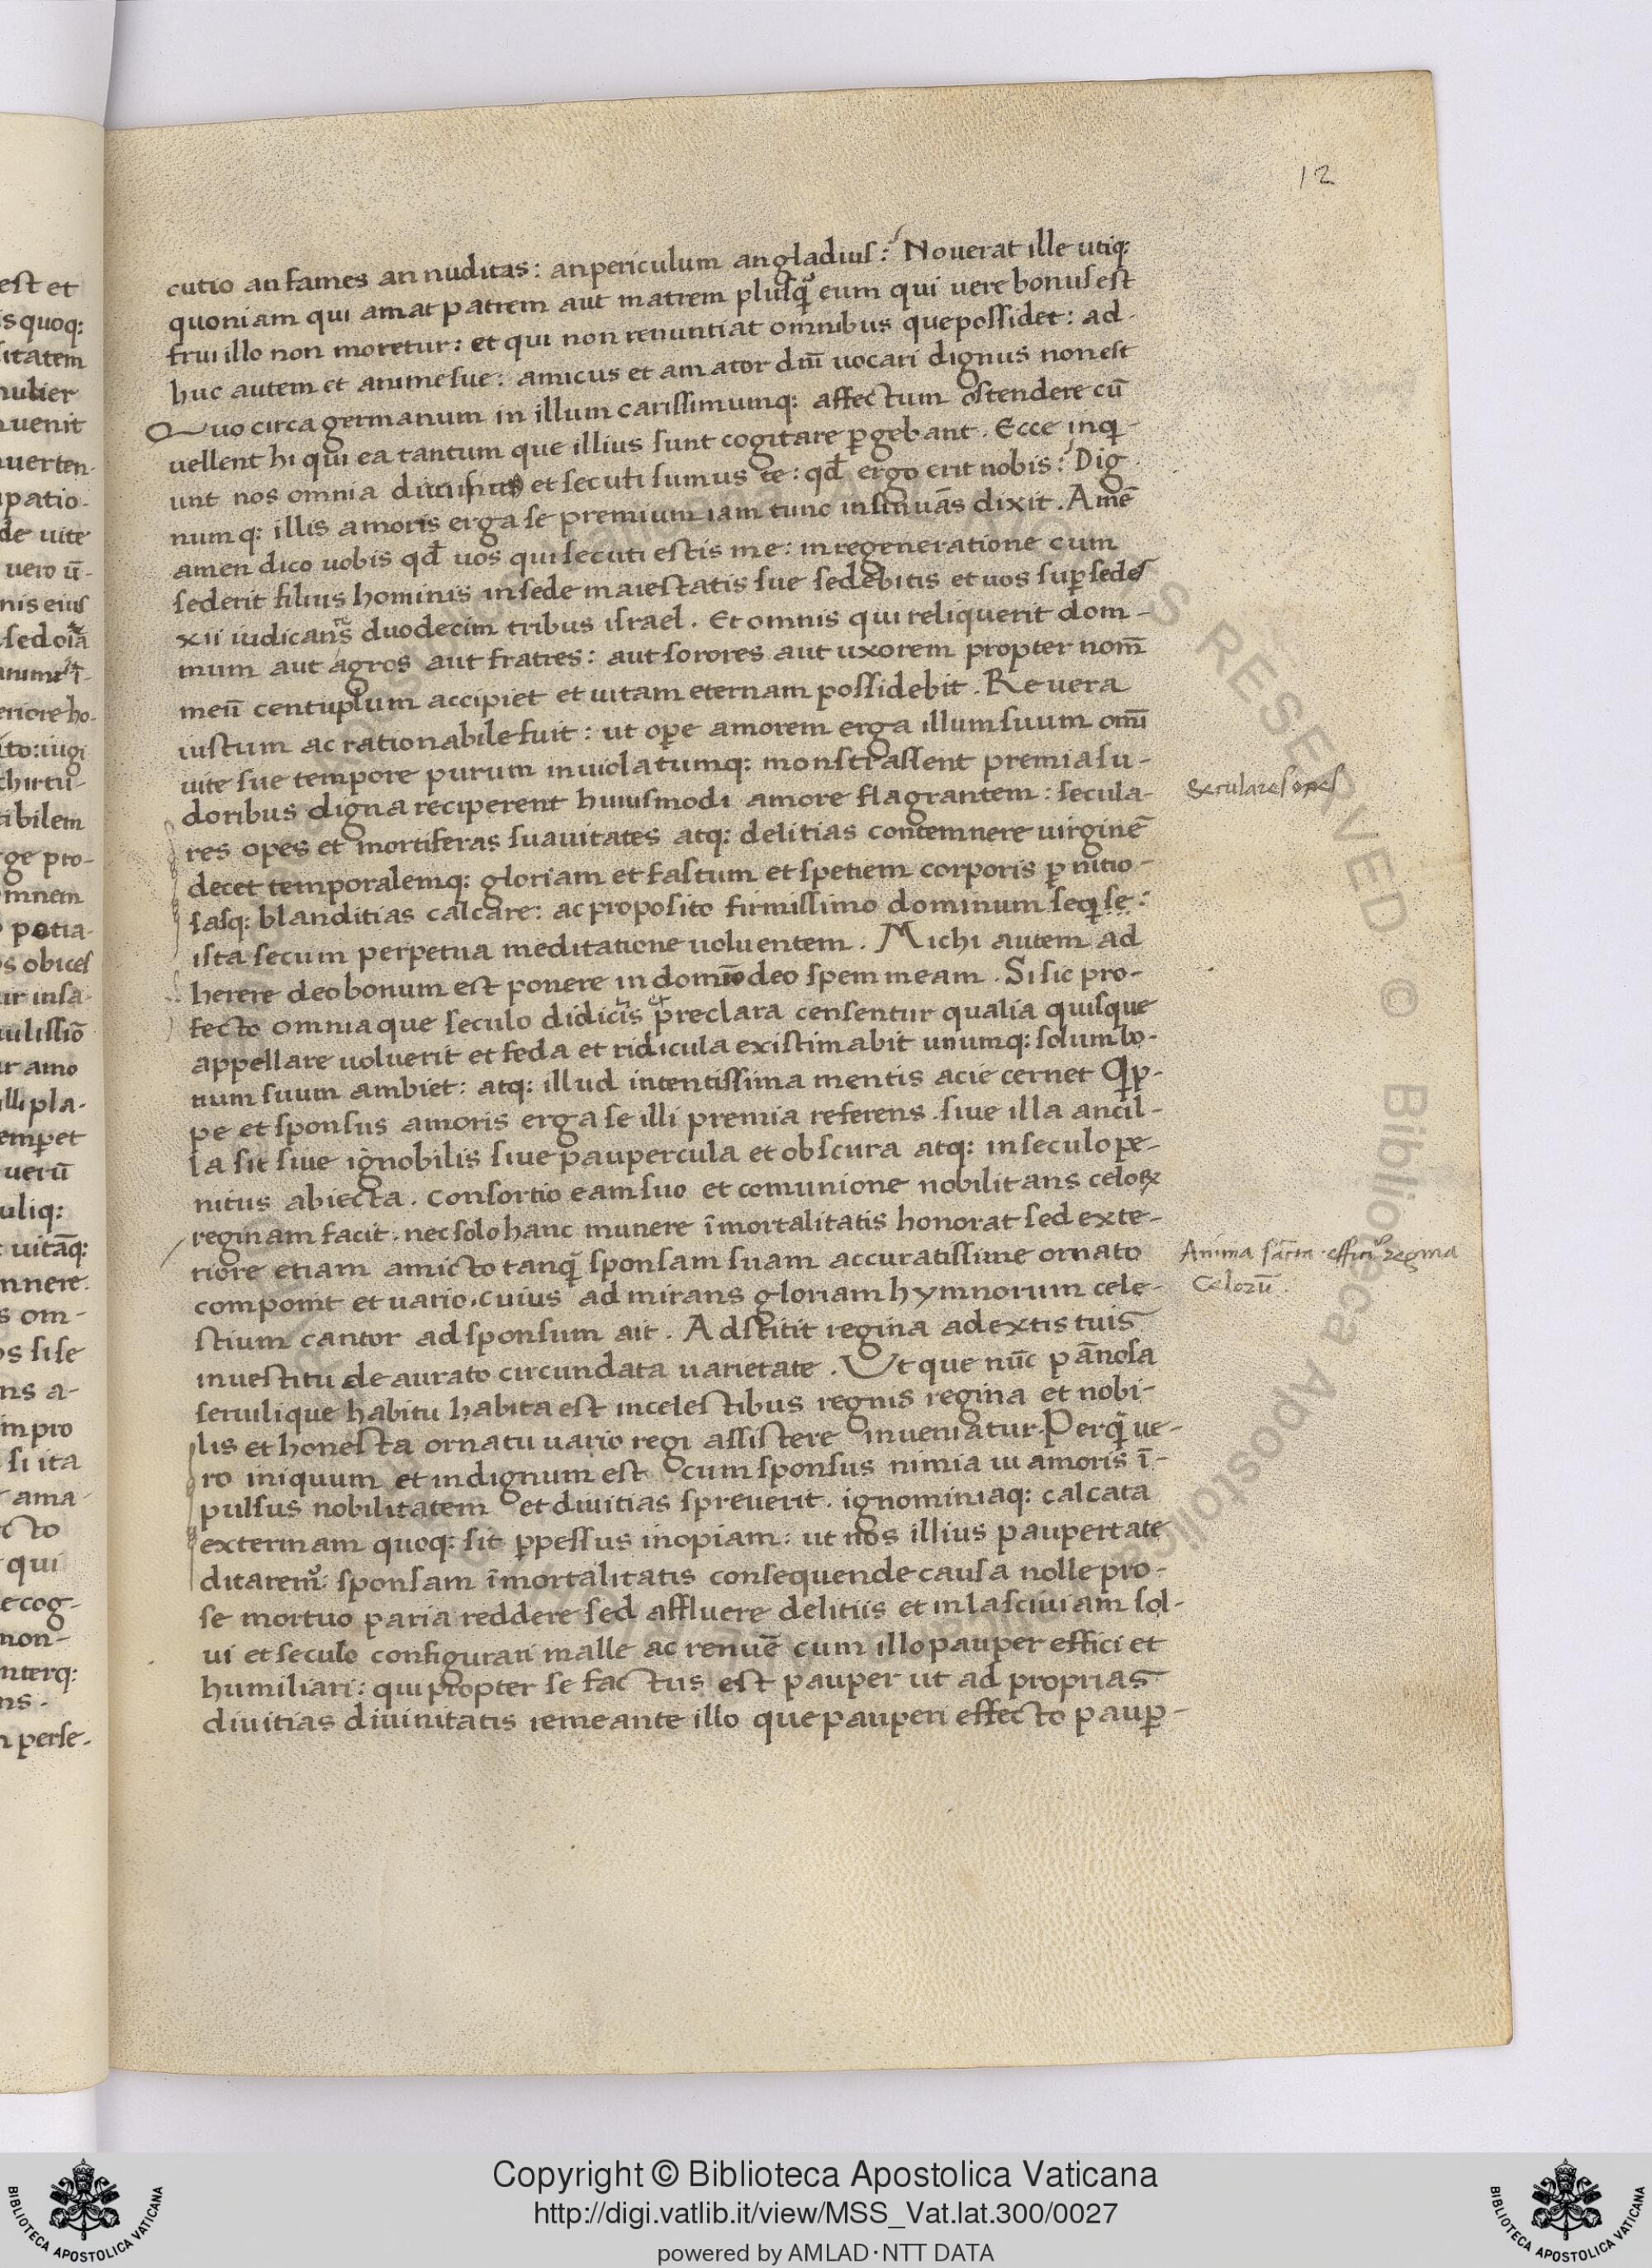 12
cutio an fames an nuditas: an periculum an gladius: Nouerat ille utiq:
quoniam qui amat patrem aut matrem plusq̃ eum qui uere bonus est
frui illo non moretur: et qui non renuntiat omnibus que possidet: ad-
huc autem et anime sue: amicus et amator dñi uocari dignus non est
Quo circa germanum in illum carissimumq: affectum ostendere cū
uellent hi qui ea tantum que illius sunt cogitare ꝑgebant. Ecce inqi-
unt nos omnia et secuti sumus te: qđ ergo erit nobis: Dig
numq: illis amoris erga se premium iam tunc insinuās dixit. Amē
amen dico uobis qđ uos qui secuti estis me: in regeneratione cum
sederit filius hominis in sede maiestatis sue sedebitis et uos suꝑ sedes
xii iudicans duodecim tribus israel. Et omnis qui reliquerit dom-
mum aut agros aut fratres: aut sorores aut uxorem propter nom̄
meū centuplum accipiet et uitam eternam possidebit. Re uera
iustum ac rationabile fuit: ut oꝑe amorem erga illum suum omī
uite sue tempore purum inuiolatumq: monstrassent premia su-
doribus digna reciperent huiusmodi amore flagrantem: secula-
res opes et mortiferas suauitates atq: delitias contemnere uirginē
decet temporalemq: gloriam et fastum et spetiem corporis ꝑnitio-
sasq: blanditias calcare: ac proposito firmissimo dominum seqi se:
ista secum perpetua meditatione uoluentem. Michi autem ad
herere deo bonum est ponere in domīo deo spem meam. Si sic pro-
fecto omnia que seculo didicis et preclara censentur qualia quisque
appellare uoluerit et feda et ridicula existimabit unumq: solum bo-
num suum ambiet: atq: illud intentissima mentis acie cernet Qiꝑ-
pe et sponsus amoris erga se illi premia referens. siue illa ancil-
la sit siue ignobilis siue paupercula et obscura atq: in seculo pe-
nitus abiecta. Consortio eam suo et comunione nobilitans celoꝝ
reginam facit. nec solo hanc munere īmortalitatis honorat sed exte-
riore etiam amicto tanq̃ sponsam suam accuratissime ornato
componit et uario. cuius admirans gloriam hymnorum cele-
stium cantor ad sponsum ait. Adstitit regina a dextis tuis
in uestitu deaurato circundata uarietate. Ut que nūc pānosa
seruilique habitu habita est in celestibus regnis regina et nobi-
lis et honesta ornatu uario regi assistere inueniatur. Perq̃ ue-
ro iniquum et indignum est cum sponsus nimia ui amoris ī-
pulsus nobilitatem et diuitias spreuerit. ignominiaq: calcata
extermam quoq: sit ꝑpessus inopiam: ut nos illius paupertate
ditaremꝰ sponsam īmortalitatis consequende causa nolle pro-
se mortuo paria reddere sed affluere delitiis et in lasciuiam sol-
ui et seculo configurari malle ac renuē cum illo pauper effici et
humiliari: qui propter se factus est pauper ut ad proprias
diuitias diuinitatis remeante illo que pauperi effecto pauꝑ-
Seculares opes
Anima sācta efficiꝰ regina
Celorū
Copyright © Biblioteca Apostolica Vaticana
http://digi.vatlib.it/view/MSS_Vat.lat.300/0027
powered by AMLAD·NTT DATA
BIBLIOTECA APOSTOLICA VATICANA
BIBLIOTECA APOSTOLICA VATICANA